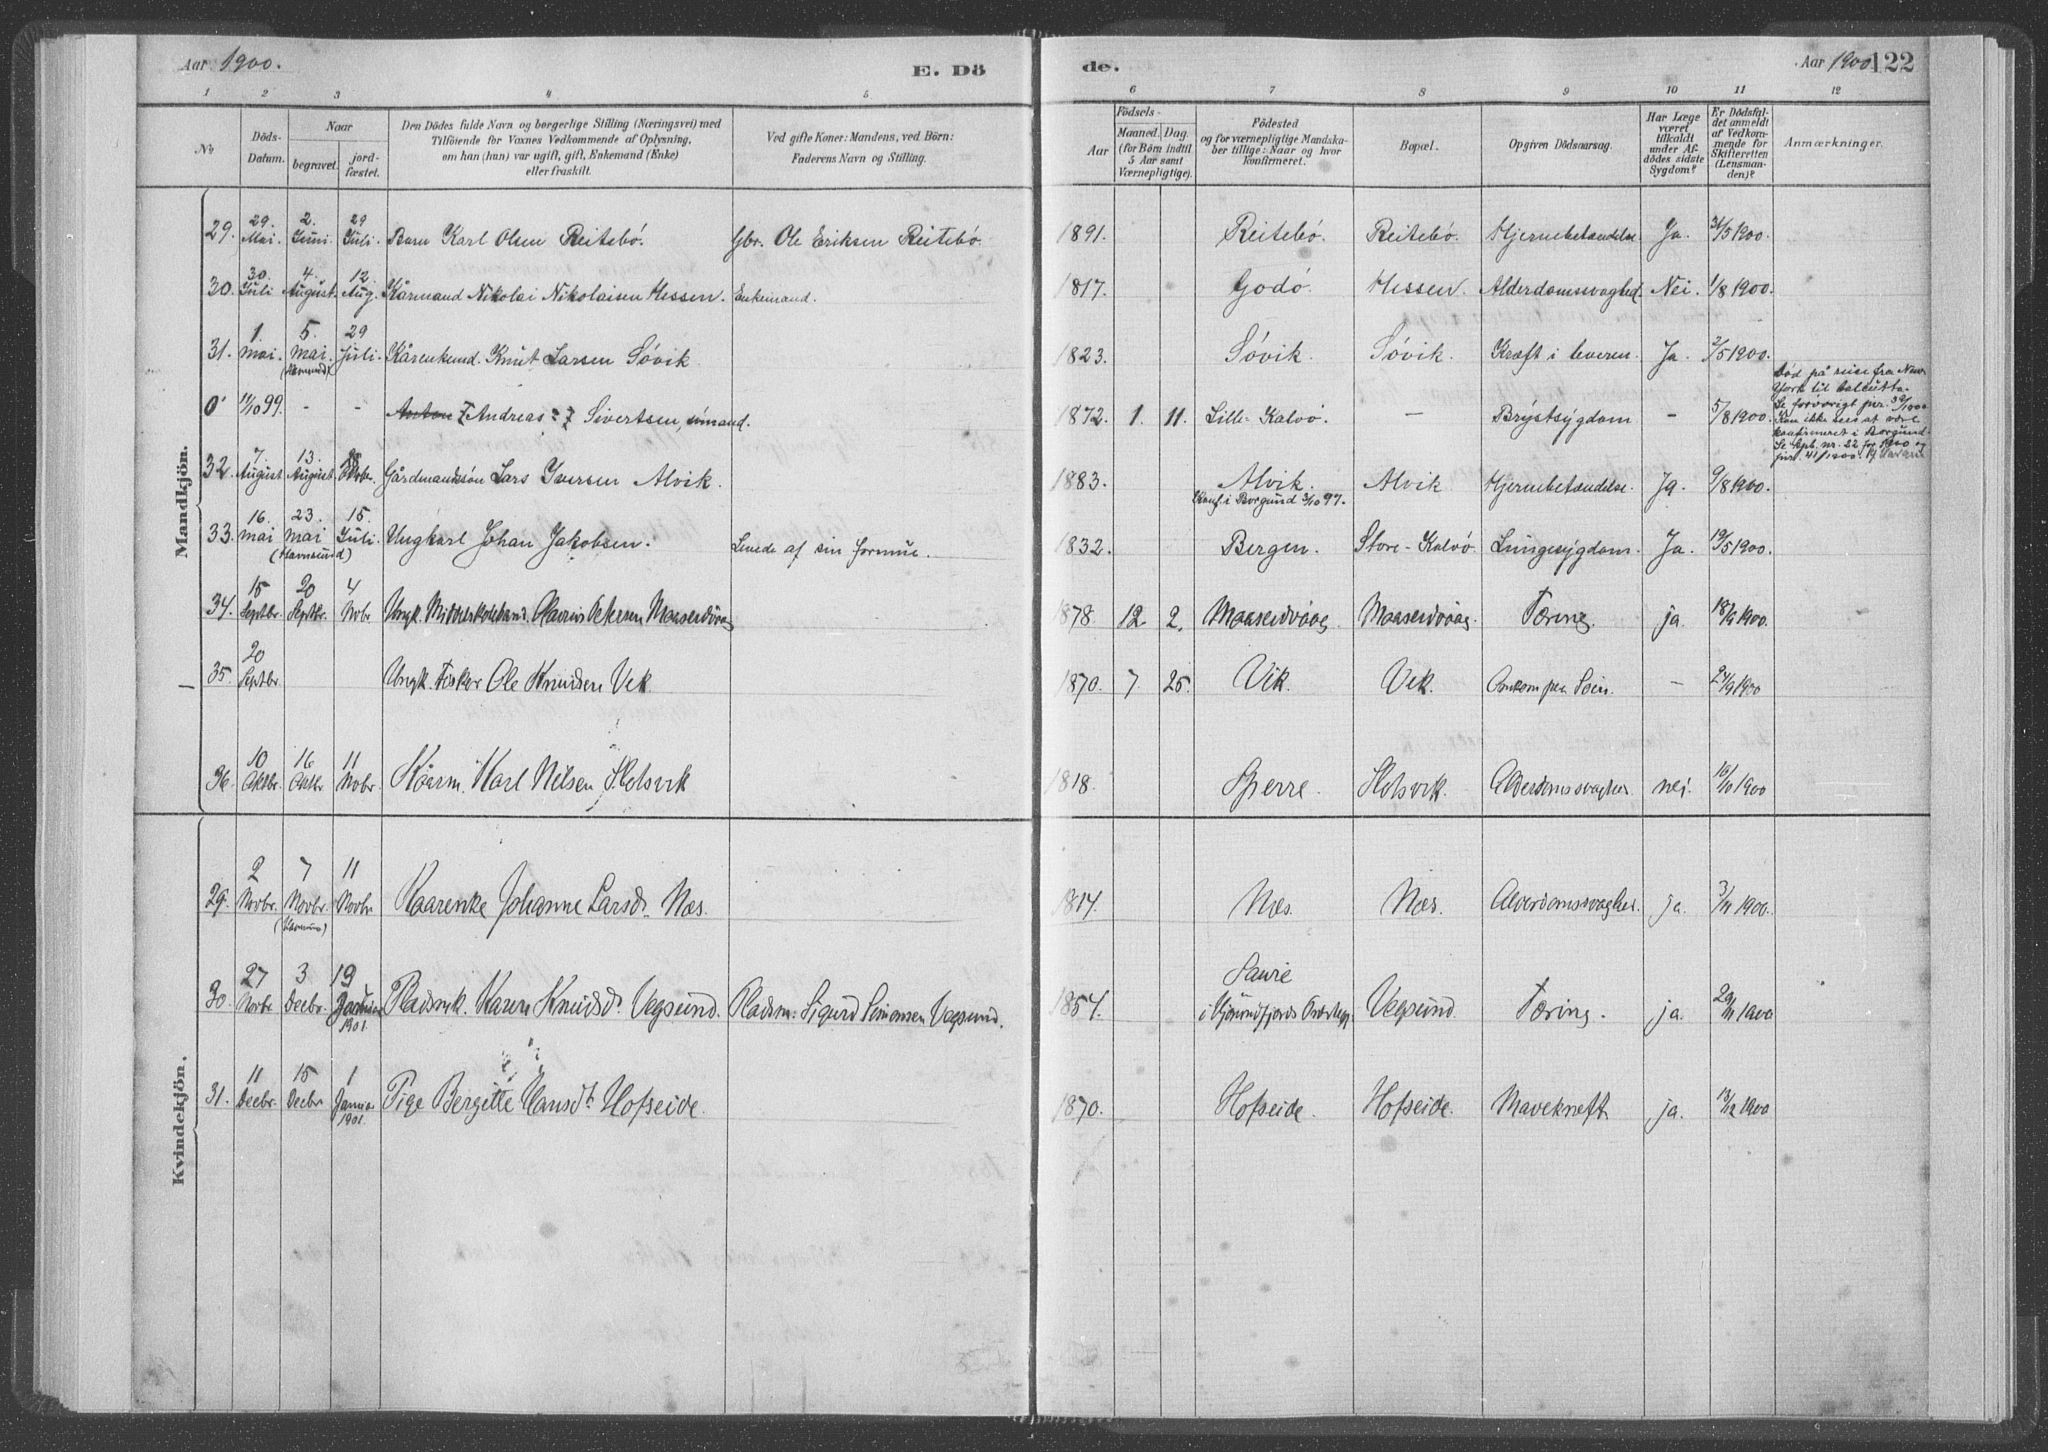 Aar 1900. E. Dö
de. Aar 1900 122
1 2 3 4 5
6 7 8 9 10 11 12
No. Döds-Datum. Naar begravet. jord-fæstet. Den Dödes fulde Navn og borgerlige Stilling (Næringsvei) med Tilföiende for Voxnes Vedkommende af Oplysning, om han (hun) var ugift, gift, Enkemand (Enke) eller fraskilt. Ved gifte Koner: Mandens, ved Börn: Faderens Navn og Stilling.
Födsels- Aar Maaned. Dag. (for Börn indtil 5 Aar samt Værnepligtige). Födested og for værnepligtige Mandskaber tillige: Naar og hvor konfirmeret. Bopæl. Opgiven Dödsaarsag. Har Læge været tilkaldt under Afdödes sidste Sygdom? Er Dödsfaldet anmeldt af Vedkommende for Skifteretten (Lensmanden)? Anmærkninger.
Mandkjön.
29. 29. Mai. 2. Juni. 29 Juli. Barn Karl Olsen Reitebö. Gbr. Ole Eriksen Reitebö. 1891. Reitebö. Reitebö. Hjernebetændelse. Ja. 31/5 1900.
30. 30. Juli 4. August. 12 Aug. Kårmand Nikolai Nikolaisen Hessen. Enkemand. 1817. Godö. Hessen. Alderdomssvaghed. Nei. 1/8 1900.
31. 1. Mai. 5. Mai. 29 Juli. Kårenkemd. Knut Larsen Sövik 1823. Sövik. Sövik. Kræft i leveren. Ja. 2/5 1900.
0 11/10 99. - - Anton Andreas Sivertsen, sömand. 1872. 1. 11. Lille-Kalvö. - Brystsygdom - 5/8 1900. Död på reise fra New York til Calcutta. Se forövrigt jnr. 39/1900 Kan ikke sees at være konfirmeret i Borgund. 
32. 7. August 13. August Oktbr. Gårdmandssön Lars Iversen Alvik. 1883. Alvik. Konf. i Borgund 3/10 97. Alvik Hjernebetændelse. Ja. 9/8 1900.
33. 16. mai 23. mai (Havnsund) 15. Juli. Ungkarl Johan Jakobsen. Levede af sin formue. 1832. Bergen. Store-Kalvö Lungesygdom. Ja. 19/5 1900.
34. 15 Septbr. 20 Septbr. 4 Novbr 1878. 12. 2. Maaseidvaag Maaseidvaag. Tæring. ja. 18/9 1900.
35. 20 Septbr Ungk. Fisker Ole Knudsen Vik 1870. 7 25. Vik. Vik. Omkom paa Söen. - 24/9 1900
36. 10 Oktbr. 16 Oktbr 11 Novbr. Kaarm. Karl Nilsen Slotsvik 1818. Sperre. Slotsvik. Alderdomssvaghed nei. 16/10 1900
Kvindekjön.
29. 2 Novbr. 7 Novbr. 11 Novbr Kaarenke Johanne Larsd. Næs. 1814. Næs. Næs. Alderdomssvaghed. ja. 3/11 1900.
30. 27 Novbr 3 Decbr. 19 Januar 1901. Pladsmk. Karen Knudsd. Vegsund. Pladsm: Sigurd Simonsen Vegsund. 1854. Saure i Hjörundfjords Vegsund. Tæring. ja. 29/11 1900
31. 11 Decbr. 15 Decbr 1 Januar 1901. Pige Bergitte Hansdt. Hofseide. 1870. Hofseide. Hofseide. Mavekræft ja. 13/12 1900